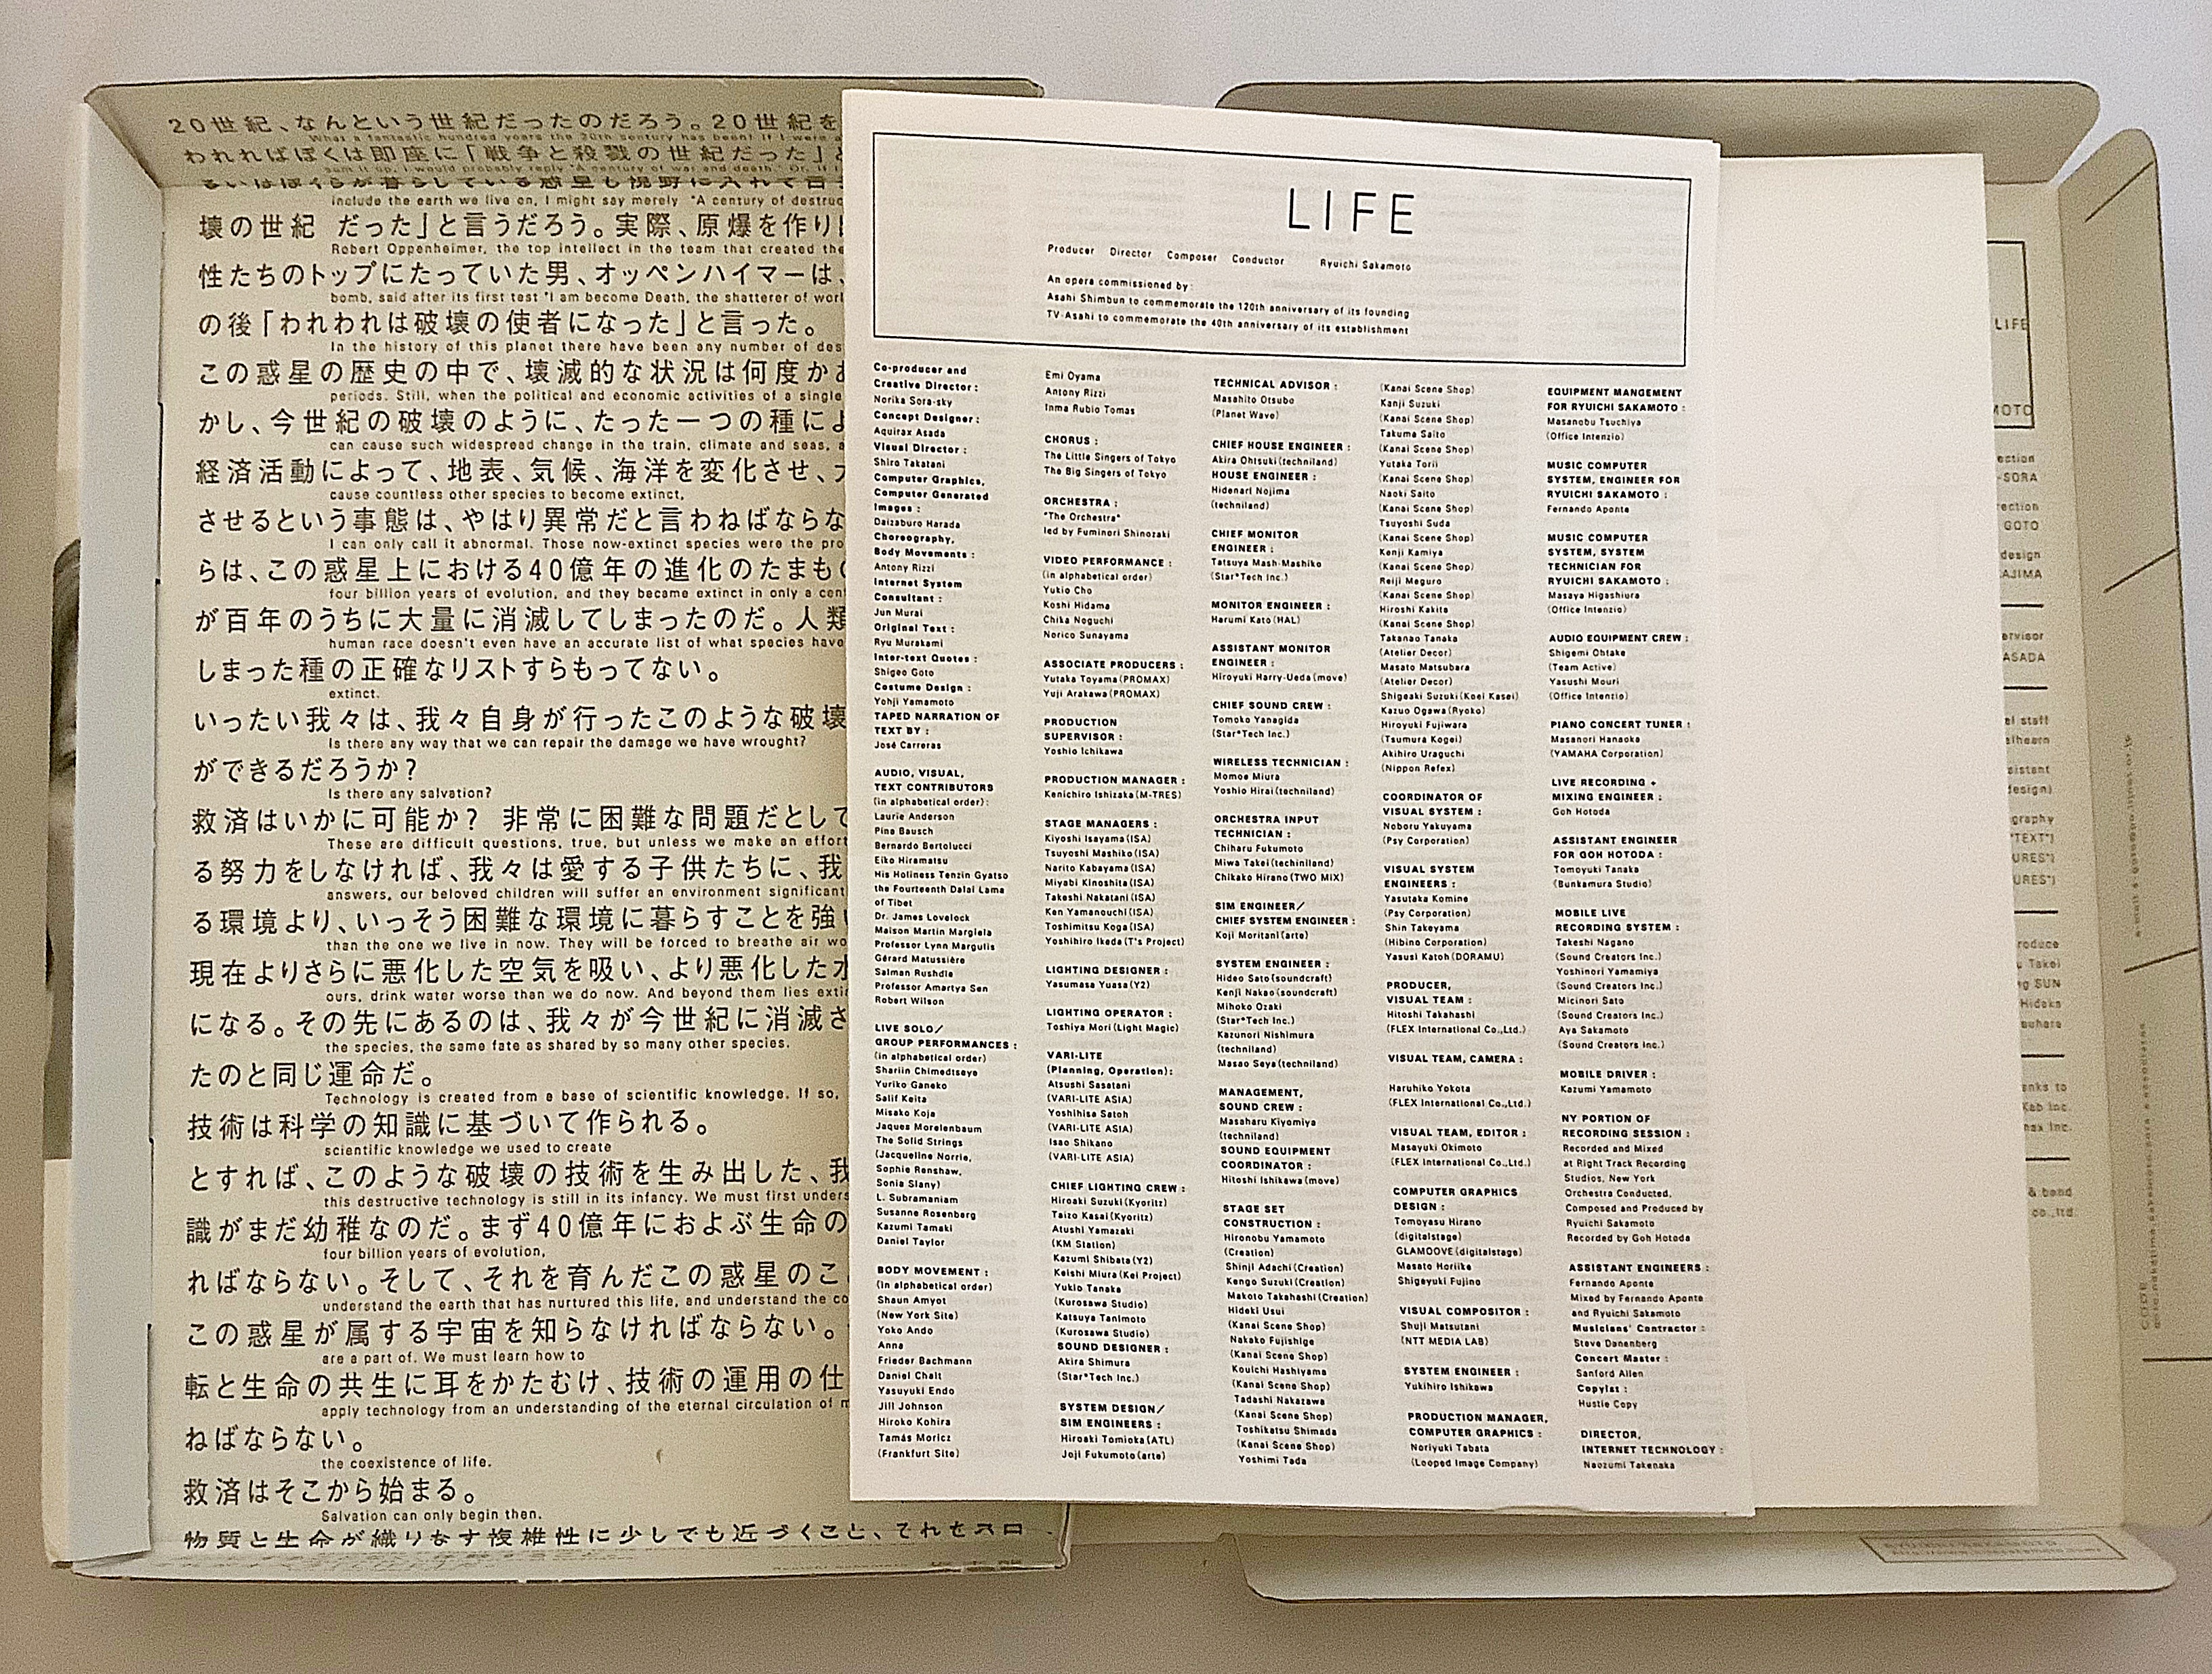 20世紀、なんという世紀だったのだろう。20世紀を
What a fantastic hundred years the 20th century has been! If I were
われればぼくは即座に「戦争と殺戮の世紀だった」と
sum it up, I would probably reply "A century of war and death." Or, if I
るいはぼくらが暮らしている惑星も視野に入れて言
include the earth we live on, I might say merely "A century of destruc
壊の世紀 だった」と言うだろう。実際、原爆を作り
Robert Oppenheimer, the top intellect in the team that created the
性たちのトップにたっていた男、オッペンハイマーは、
bomb, said after its first test "I am become Death, the shatterer of worl
の後「われわれは破壊の使者になった」と言った。
In the history of this planet there have been any number of des
この惑星の歴史の中で、壊滅的な状況は何度か
periods. Still, when the political and economic activities of a single
かし、今世紀の破壊のように、たった一つの種によ
can cause such widespread change in the train, climate and seas, a
経済活動によって、地表、気候、海洋を変化させ、
cause countless other species to become extinct,
させるという事態は、やはり異常だと言わねばならな
I can only call it abnormal. Those now-extinct species were the pro
らは、この惑星上における40億年の進化のたまもの
four billion years of evolution, and they became extinct in only a cen
が百年のうちに大量に消滅してしまったのだ。人類
human race doesn't even have an accurate list of what species have
しまった種の正確なリストすらもってない。
extinct.
いったい我々は、我々自身が行ったこのような破壊
Is there any way that we can repair the damage we have wrought?
ができるだろうか?
Is there any salvation?
救済はいかに可能か? 非常に困難な問題だとして
These are difficult questions, true, but unless we make an effort
る努力をしなければ、我々は愛する子供たちに、我
answers, our beloved children will suffer an environment significant
る環境より、いっそう困難な環境に暮らすことを強い
than the one we live in now. They will be forced to breathe air wo
現在よりさらに悪化した空気を吸い、より悪化した水
ours, drink water worse than we do now. And beyond them lies exti
になる。その先にあるのは、我々が今世紀に消滅さ
the species, the same fate as shared by so many other species.
たのと同じ運命だ。
Technology is created from a base of scientific knowledge. If so,
技術は科学の知識に基づいて作られる。
scientific knowledge we used to create
とすれば、このような破壊の技術を生み出した、我
this destructive technology is still in its infancy. We must first unders
識がまだ幼稚なのだ。まず40億年におよぶ生命の
four billion years of evolution,
ればならない。そして、それを育んだこの惑星のこ
understand the earth that has nurtured this life, and understand the co
この惑星が属する宇宙を知らなければならない。
are a part of. We must learn how to
転と生命の共生に耳をかたむけ、技術の運用の仕
apply technology from an understanding of the eternal circulation of m
ねばならない。
the coexistence of life.
救済はそこから始まる。
Salvation can only begin then.
物質と生命が織りなす複雑性に少しでも近づくこと、それを
LIFE
Producer Director Composer Conductor Ryuichi Sakamoto
An opera commissioned by:
Asahi Shimbun to commemorate the 120th anniversary of its founding
TV Asahi to commemorate the 40th anniversary of its establishment
Co-producer and
Creative Director:
Norika Sora-sky
Concept Designer:
Aquirax Asada
Visual Director:
Shiro Takatani
Computer Graphics,
Computer Generated
Images:
Daizaburo Harada
Choreography,
Body Movements:
Antony Rizzi
Internet System
Consultant:
Jun Murai
Original Text:
Ryu Murakami
Inter-text Quotes:
Shigeo Goto
Costume Design:
Yohji Yamamoto
TAPED NARRATION OF
TEXT BY:
José Carreras
AUDIO, VISUAL,
TEXT CONTRIBUTORS
(in alphabetical order):
Laurie Anderson
Pina Bausch
Bernardo Bertolucci
Eiko Hiramatsu
His Holiness Tenzin Gyatso
the Fourteenth Dalai Lama
of Tibet
Dr. James Lovelock
Maison Martin Margiela
Professor Lynn Margulis
Gérard Matussière
Salman Rushdie
Professor Amartya Sen
Robert Wilson
LIVE SOLO/
GROUP PERFORMANCES:
(in alphabetical order)
Shariin Chimedtseye
Yuriko Ganeko
Salif Keita
Misako Koja
Jaques Morelenbaum
The Solid Strings
(Jacqueline Norrie,
Sophie Renshaw,
Sonia Slany)
L. Subramaniam
Susanne Rosenberg
Kazumi Tamaki
Daniel Taylor
BODY MOVEMENT:
(in alphabetical order)
Shaun Amyot
(New York Site)
Yoko Ando
Anna
Frieder Bachmann
Daniel Chait
Yasuyuki Endo
Jill Johnson
Hiroko Kohira
Tamás Moricz
(Frankfurt Site)
Emi Oyama
Antony Rizzi
Inma Rubio Tomas
CHORUS:
The Little Singers of Tokyo
The Big Singers of Tokyo
ORCHESTRA:
"The Orchestra"
led by Fuminori Shinozaki
VIDEO PERFORMANCE:
(in alphabetical order)
Yukio Cho
Koshi Hidama
Chika Noguchi
Norico Sunayama
ASSOCIATE PRODUCERS:
Yutaka Toyama (PROMAX)
Yuji Arakawa (PROMAX)
PRODUCTION
SUPERVISOR:
Yoshio Ichikawa
PRODUCTION MANAGER:
Kenichiro Ishizaka (M-TRES)
STAGE MANAGERS:
Kiyoshi Isayama (ISA)
Tsuyoshi Mashiko (ISA)
Narito Kabayama (ISA)
Miyabi Kinoshita (ISA)
Takeshi Nakatani (ISA)
Ken Yamanouchi (ISA)
Toshimitsu Koga (ISA)
Yoshihiro Ikeda (T's Project)
LIGHTING DESIGNER:
Yasumasa Yuasa (Y2)
LIGHTING OPERATOR:
Toshiya Mori (Light Magic)
VARI-LITE
(Planning, Operation):
Atsushi Sasatani
(VARI-LITE ASIA)
Yoshihisa Satoh
(VARI-LITE ASIA)
Isao Shikano
(VARI-LITE ASIA)
CHIEF LIGHTING CREW:
Hiroaki Suzuki (Kyoritz)
Taizo Kasai (Kyoritz)
Atushi Yamazaki
(KM Station)
Kazumi Shibata (Y2)
Keishi Miura (Kei Project)
Yukio Tanaka
(Kurosawa Studio)
Katsuya Tanimoto
(Kurosawa Studio)
SOUND DESIGNER:
Akira Shimura
(Star*Tech Inc.)
SYSTEM DESIGN/
SIM ENGINEERS:
Hiroaki Tomioka (ATL)
Joji Fukumoto (arte)
TECHNICAL ADVISOR:
Masahito Otsubo
(Planet Wave)
CHIEF HOUSE ENGINEER:
Akira Ohtsuki (techniland)
HOUSE ENGINEER:
Hidenari Nojima
(techniland)
CHIEF MONITOR
ENGINEER:
Tatsuya Mash-Mashiko
(Star*Tech Inc.)
MONITOR ENGINEER:
Harumi Kato (HAL)
ASSISTANT MONITOR
ENGINEER:
Hiroyuki Harry-Ueda (move)
CHIEF SOUND CREW:
Tomoko Yanagida
(Star*Tech Inc.)
WIRELESS TECHNICIAN:
Momoe Miura
Yoshio Hirai (techniland)
ORCHESTRA INPUT
TECHNICIAN:
Chiharu Fukumoto
Miwa Takei (techiniland)
Chikako Hirano (TWO MIX)
SIM ENGINEER/
CHIEF SYSTEM ENGINEER:
Koji Moritani (arte)
SYSTEM ENGINEER:
Hideo Sato (soundcraft)
Kenji Nakao (soundcraft)
Mihoko Ozaki
(Star*Tech Inc.)
Kazunori Nishimura
(techniland)
Masao Seya (techniland)
MANAGEMENT,
SOUND CREW:
Masaharu Kiyomiya
(techniland)
SOUND EQUIPMENT
COORDINATOR:
Hitoshi Ishikawa (move)
STAGE SET
CONSTRUCTION:
Hironobu Yamamoto
(Creation)
Shinji Adachi (Creation)
Kengo Suzuki (Creation)
Makoto Takahashi (Creation)
Hideki Usui
(Kanai Scene Shop)
Nakako Fujishige
(Kanai Scene Shop)
Kouichi Hashiyama
(Kanai Scene Shop)
Tadashi Nakazawa
(Kanai Scene Shop)
Toshikatsu Shimada
(Kanai Scene Shop)
Yoshimi Tada
(Kanai Scene Shop)
Kanji Suzuki
(Kanai Scene Shop)
Takuma Saito
(Kanai Scene Shop)
Yutaka Torii
(Kanai Scene Shop)
Naoki Saito
(Kanai Scene Shop)
Tsuyoshi Suda
(Kanai Scene Shop)
Kenji Kamiya
(Kanai Scene Shop)
Reiji Meguro
(Kanai Scene Shop)
Hiroshi Kakita
(Kanai Scene Shop)
Takanao Tanaka
(Atelier Decor)
Masato Matsubara
(Atelier Decor)
Shigeaki Suzuki (Koei Kasei)
Kazuo Ogawa (Ryoko)
Hiroyuki Fujiwara
(Tsumura Kogei)
Akihiro Uraguchi
(Nippon Refex)
COORDINATOR OF
VISUAL SYSTEM:
Noboru Yakuyama
(Psy Corporation)
VISUAL SYSTEM
ENGINEERS:
Yasutaka Komine
(Psy Corporation)
Shin Takeyama
(Hibino Corporation)
Yasusi Katoh (DORAMU)
PRODUCER,
VISUAL TEAM:
Hitoshi Takahashi
(FLEX International Co.,Ltd.)
VISUAL TEAM, CAMERA:
Haruhiko Yokota
(FLEX International Co.,Ltd.)
VISUAL TEAM, EDITOR:
Masayuki Okimoto
(FLEX International Co.,Ltd.)
COMPUTER GRAPHICS
DESIGN:
Tomoyasu Hirano
(digitalstage)
GLAMOOVE (digitalstage)
Masato Horiike
Shigeyuki Fujino
VISUAL COMPOSITOR:
Shuji Matsutani
(NTT MEDIA LAB)
SYSTEM ENGINEER:
Yukihiro Ishikawa
PRODUCTION MANAGER,
COMPUTER GRAPHICS:
Noriyuki Tabata
(Looped Image Company)
EQUIPMENT MANGEMENT
FOR RYUICHI SAKAMOTO:
Masanobu Tsuchiya
(Office Intenzio)
MUSIC COMPUTER
SYSTEM, ENGINEER FOR
RYUICHI SAKAMOTO:
Fernando Aponte
MUSIC COMPUTER
SYSTEM, SYSTEM
TECHNICIAN FOR
RYUICHI SAKAMOTO:
Masaya Higashiura
(Office Intenzio)
AUDIO EQUIPMENT CREW:
Shigemi Ohtake
(Team Active)
Yasushi Mouri
(Office Intenzio)
PIANO CONCERT TUNER:
Masanori Hanaoka
(YAMAHA Corporation)
LIVE RECORDING +
MIXING ENGINEER:
Goh Hotoda
ASSISTANT ENGINEER
FOR GOH HOTODA:
Tomoyuki Tanaka
(Bunkamura Studio)
MOBILE LIVE
RECORDING SYSTEM:
Takeshi Nagano
(Sound Creators Inc.)
Yoshinori Yamamiya
(Sound Creators Inc.)
Micinori Sato
(Sound Creators Inc.)
Aya Sakamoto
(Sound Creators Inc.)
MOBILE DRIVER:
Kazumi Yamamoto
NY PORTION OF
RECORDING SESSION:
Recorded and Mixed
at Right Track Recording
Studios, New York
Orchestra Conducted,
Composed and Produced by
Ryuichi Sakamoto
Recorded by Goh Hotoda
ASSISTANT ENGINEERS:
Fernando Aponte
Mixed by Fernando Aponte
and Ryuichi Sakamoto
Musicians' Contractor:
Steve Danenberg
Concert Master:
Sanford Allen
Copyist:
Hustle Copy
DIRECTOR,
INTERNET TECHNOLOGY:
Naozumi Takenaka
LIFE
MOTO
ection
-SORA
rection
GOTO
design
AJIMA
ervisor
ASADA
el staff
sistant
design)
graphy
"TEXT")
URES")
URES")
roduce
u Takei
ng SUN
Hideka
anks to
Kab Inc.
max Inc.
& band
co.,ltd.
CODE
RYUICHI SAKAMOTO